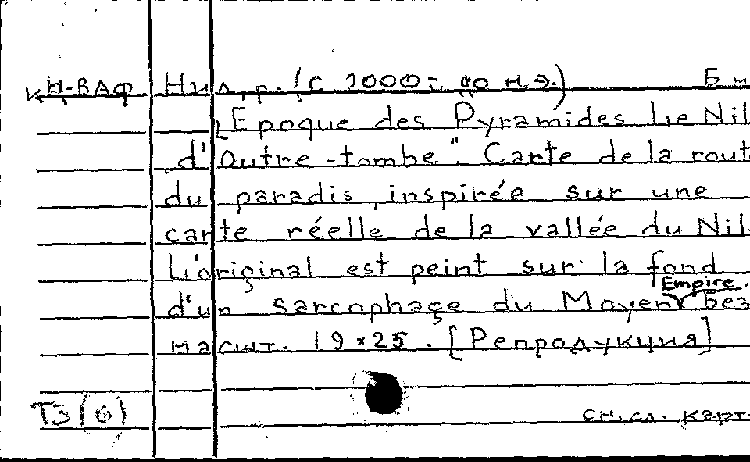 КЦ-ВАФ Нил, р. (с 2000 - до н.э.) Б м
[Epoque des Pyramides Le Nil
d'Outre-tombe". Carte de la rout
du paradis, inspirée sur une
carte réelle de la vallée du Nil
L'original est peint sur la fond
d'un sarcophage du Moyen Empire. без
масшт. 19×25. [Репродукция]
Т3(6) см.сл. карт.